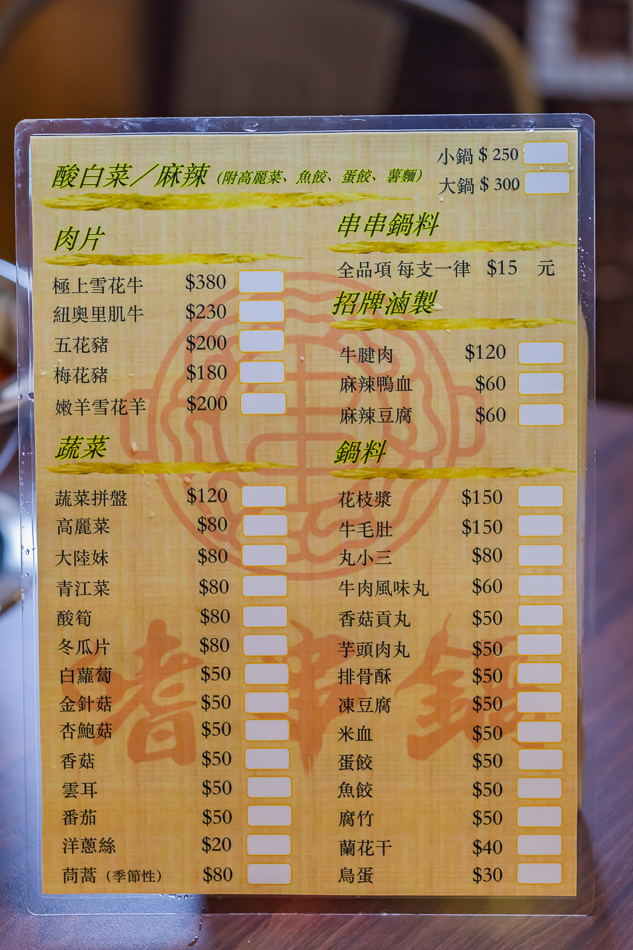 酸白菜／麻辣(附高麗菜、魚餃、蛋餃、薯麵)
小鍋 $ 250
大鍋 $ 300
肉片
極上雪花牛 $380
紐奧里肌牛 $230
五花豬 $200
梅花豬 $180
嫩羊雪花羊 $200
蔬菜
蔬菜拼盤 $120
高麗菜 $80
大陸妹 $80
青江菜 $80
酸筍 $80
冬瓜片 $80
白蘿蔔 $50
金針菇 $50
杏鮑菇 $50
香菇 $50
雲耳 $50
番茄 $50
洋蔥絲 $20
茼蒿 (季節性) $80
串串鍋料
全品項 每支一律 $15 元
招牌滷製
牛腱肉 $120
麻辣鴨血 $60
麻辣豆腐 $60
鍋料
花枝漿 $150
牛毛肚 $150
丸小三 $80
牛肉風味丸 $60
香菇貢丸 $50
芋頭肉丸 $50
排骨酥 $50
凍豆腐 $50
米血 $50
蛋餃 $50
魚餃 $50
腐竹 $50
蘭花干 $40
鳥蛋 $30
嗜串鍋